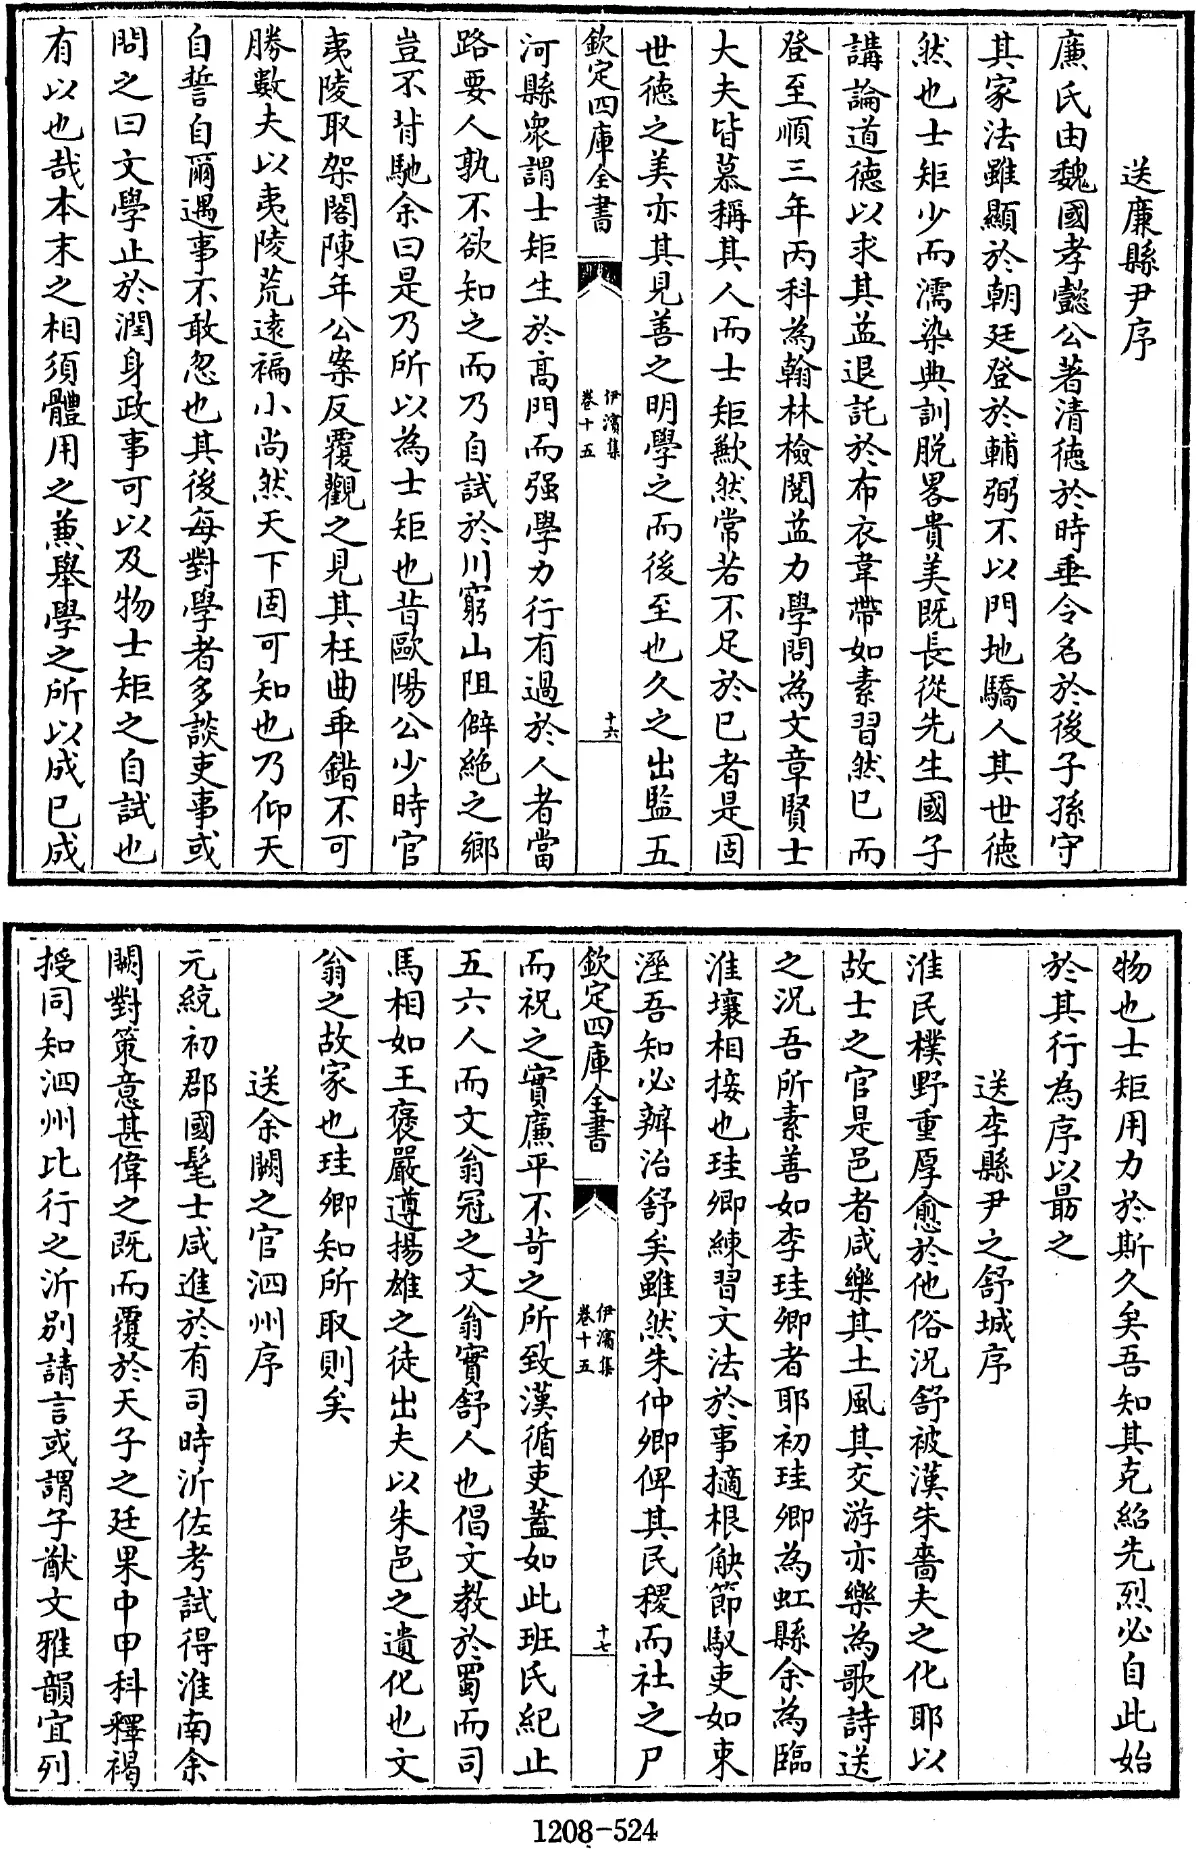 送廉縣尹序
廉氏由魏國孝懿公著清徳於時垂令名於後子孫守
其家法雖顯於朝廷登於輔弼不以門地驕人其世徳
然也士矩少而濡染典訓脱畧貴美既長從先生國子
講論道徳以求其益退託於布衣韋帶如素習然已而
登至順三年丙科為翰林檢閲益力學問為文章賢士
大夫皆慕稱其人而士矩歉然常若不足於已者是固
世徳之美亦其見善之明學之而後至也久之出監五
欽定四庫全書
伊濱集
卷十五
十六
河縣衆謂士矩生於髙門而强學力行有過於人者當
路要人孰不欲知之而乃自試於川窮山阻僻絶之鄉
豈不背馳余曰是乃所以為士矩也昔歐陽公少時官
夷陵取架閣陳年公案反覆觀之見其枉曲乖錯不可
勝數夫以夷陵荒逺褊小尚然天下固可知也乃仰天
自誓自爾遇事不敢忽也其後每對學者多談吏事或
問之曰文學止於潤身政事可以及物士矩之自試也
有以也哉本末之相須體用之兼舉學之所以成已成
物也士矩用力於斯久矣吾知其克紹先烈必自此始
於其行為序以朂之
送李縣尹之舒城序
淮民樸野重厚愈於他俗況舒被漢朱嗇夫之化耶以
故士之官是邑者咸樂其土風其交游亦樂為歌詩送
之況吾所素善如李珪卿者耶初珪卿為虹縣余為臨
淮壤相接也珪卿練習文法於事擿根觖節馭吏如束
溼吾知必辦治舒矣雖然朱仲卿俾其民稷而社之尸
欽定四庫全書
伊濱集
卷十五
十七
而祝之實廉平不苛之所致漢循吏蓋如此班氏紀止
五六人而文翁冠之文翁實舒人也倡文教於蜀而司
馬相如王褒嚴遵揚雄之徒出夫以朱邑之遺化也文
翁之故家也珪卿知所取則矣
送余闕之官泗州序
元統初郡國髦士咸進於有司時沂佐考試得淮南余
闕對策意甚偉之既而覆於天子之廷果中甲科釋褐
授同知泗州比行之沂别請言或謂子猷文雅韻宜列
1208-524